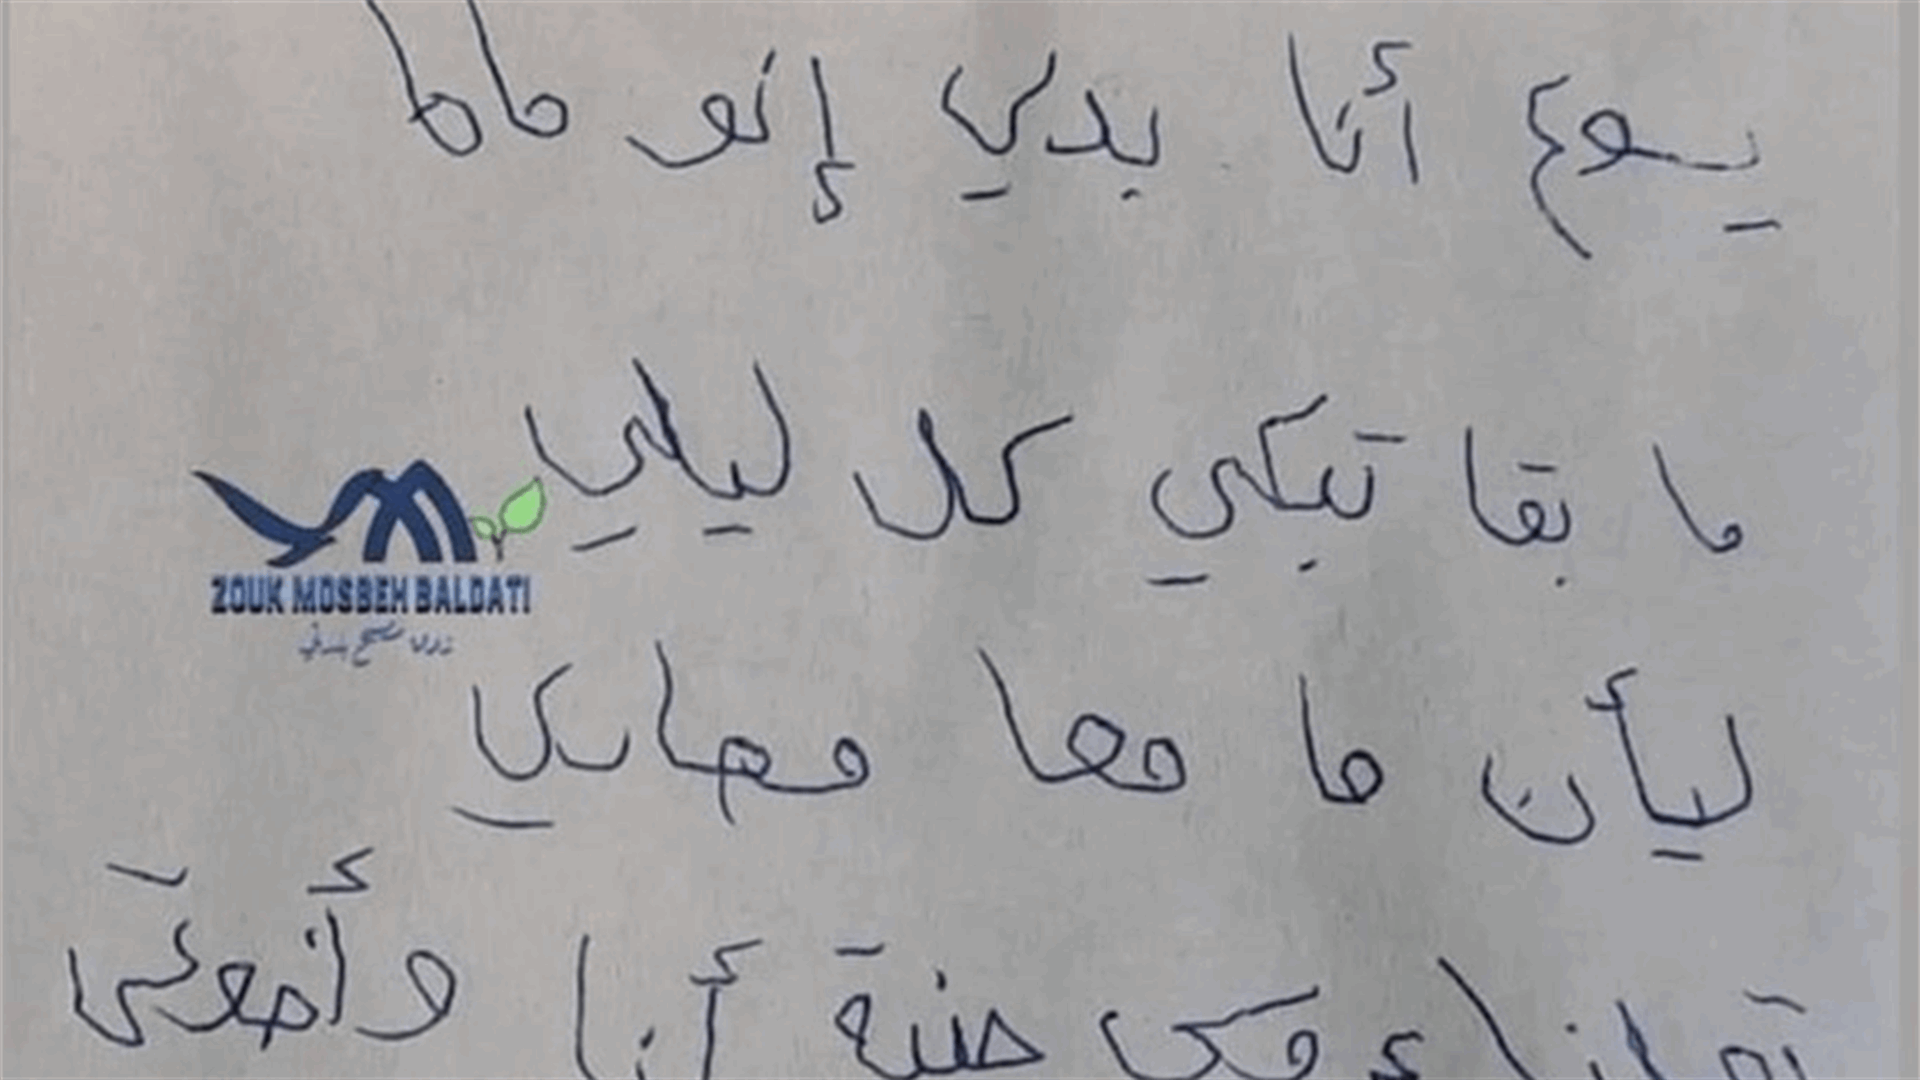 يسوع أنا بدي إنو ماما
ما بقا تبكي كل ليلي
ZOUK MOSBEH BALDATI
زوق مصبح بلدتي
ليأن ما معا مصاري
أنا وأخوتي